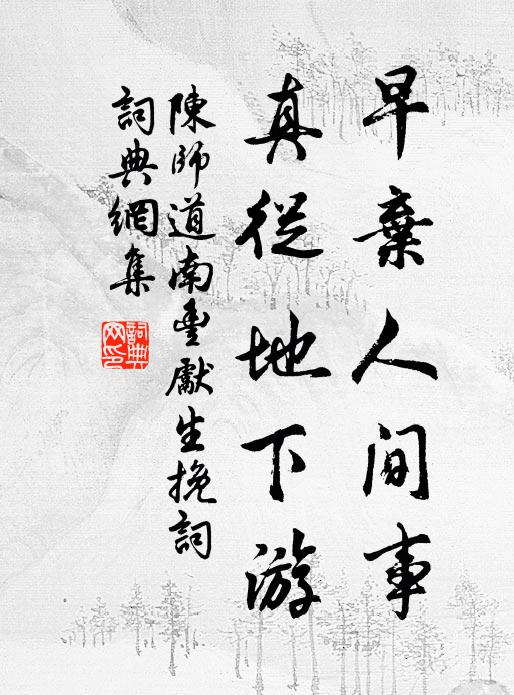 早棄人間事
真從地下游
陳師道南豐獻生挽詞
詞典網集
詞典网印